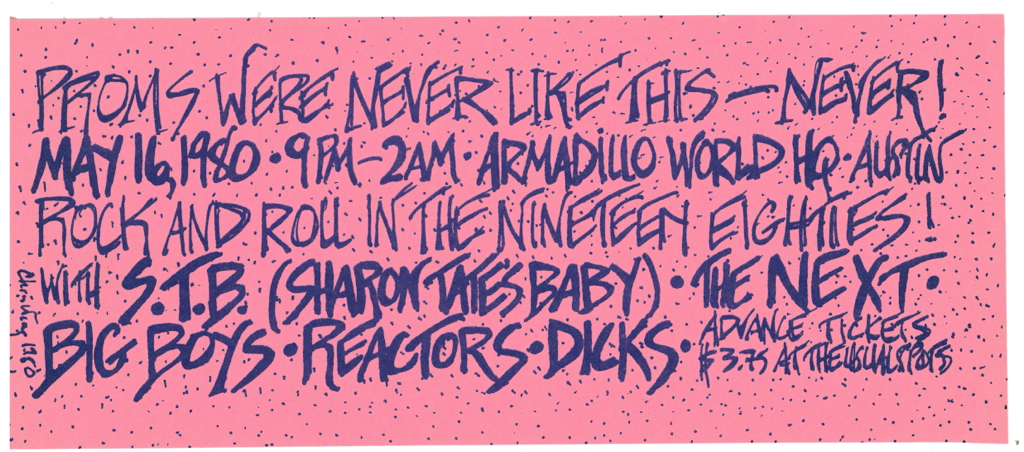 PROMS WERE NEVER LIKE THIS — NEVER!
MAY 16, 1980 • 9 PM - 2 AM • ARMADILLO WORLD HQ • AUSTIN
ROCK AND ROLL IN THE NINETEEN EIGHTIES!
WITH S.T.B. (SHARON TATE'S BABY) • THE NEXT •
BIG BOYS • REACTORS • DICKS •
ADVANCE TICKETS
$3.75 AT THE USUAL SPOTS
1980